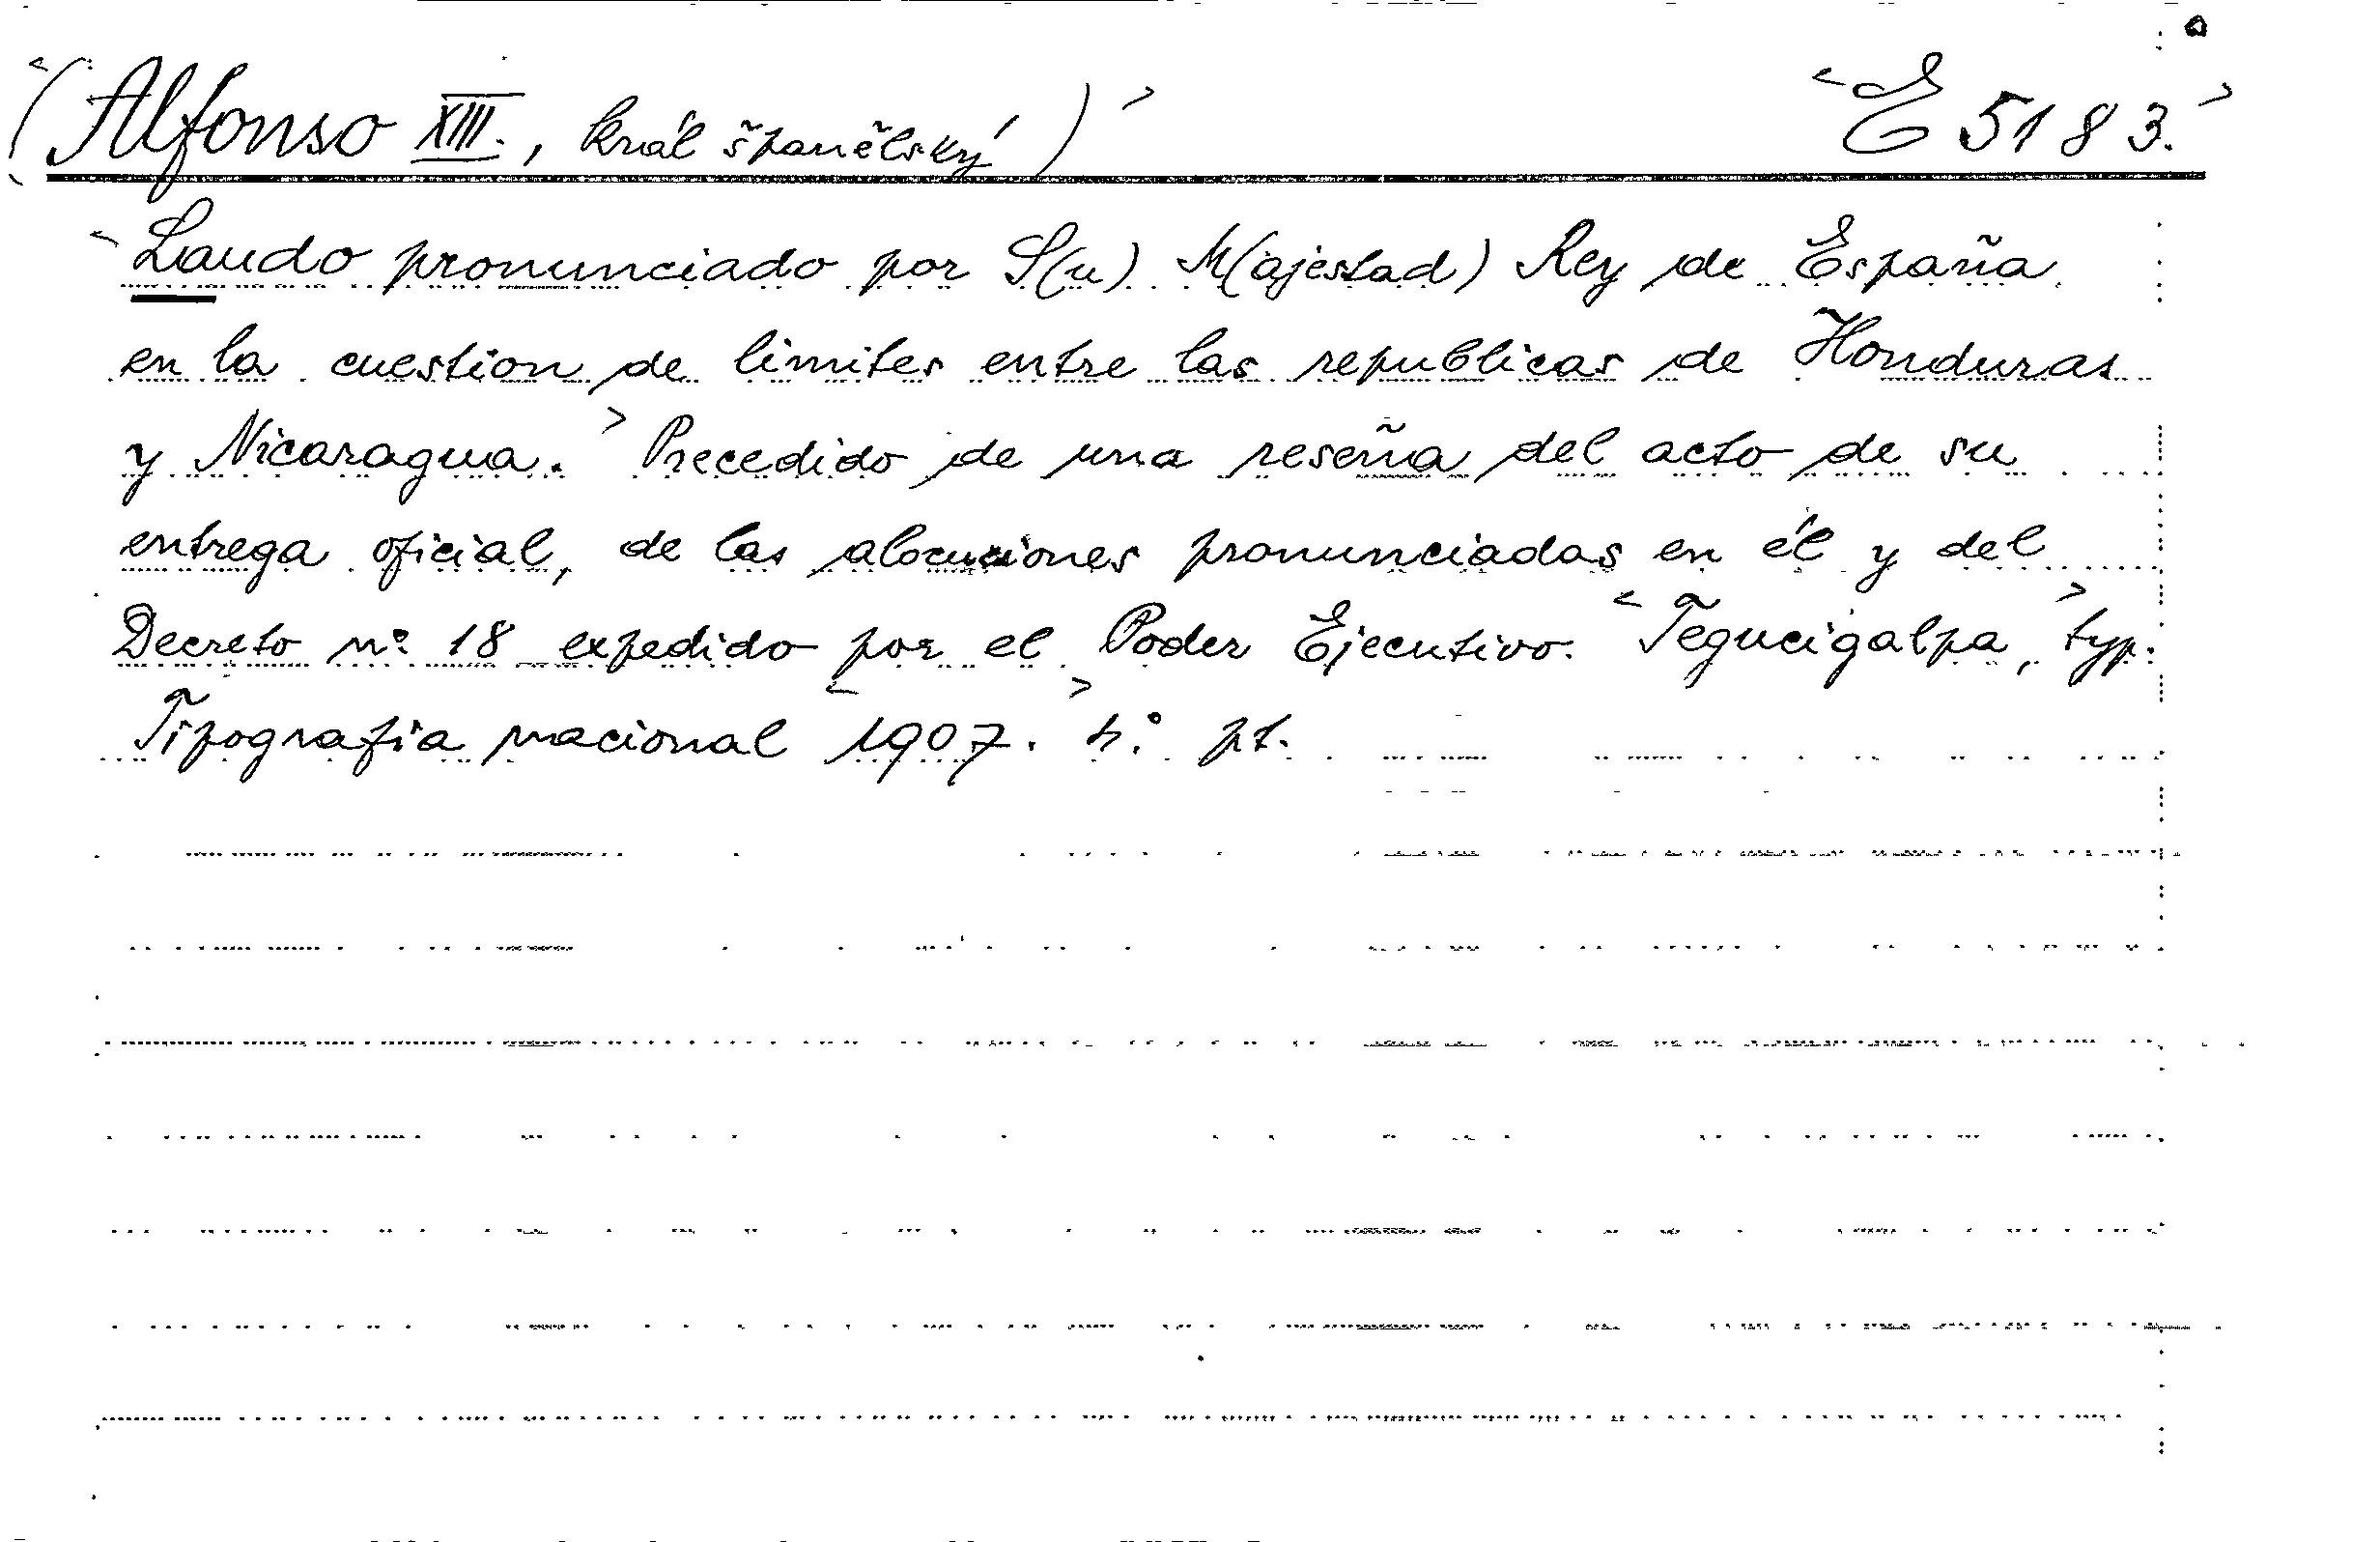 <(Alfonso XIII., král španělský)> <E 5183.>
<Laudo pronunciado por S(u) M(ajestad) Rey de España
en la cuestion de limites entre las republicas de Honduras
y Nicaragua.> Precedido de una reseña del acto de su
entrega oficial, de las alocuciones pronunciadas en él y del
Decreto nº 18 expedido por el Poder Ejecutivo. <Tegucigalpa,> typ.
Tipografia nacional <1907.> 4° pt.